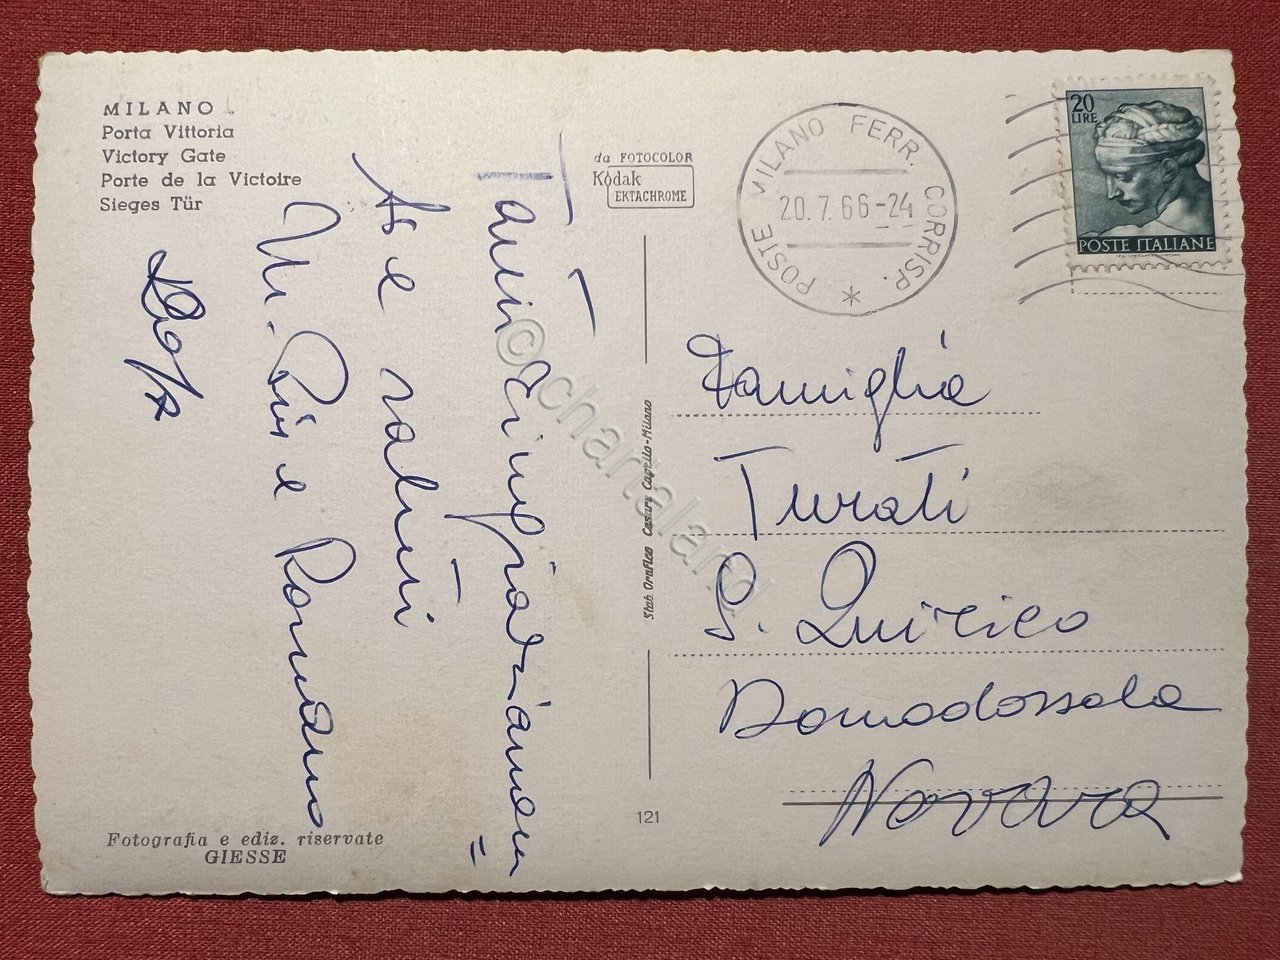 MILANO
Porta Vittoria
Victory Gate
Porte de la Victoire
Sieges Tür
da FOTOCOLOR
Kodak
EKTACHROME
POSTE MILANO FERR. CORRISP.
20.7.66-24
20
LIRE
POSTE ITALIANE
Tanti ringraziamen=
ti e saluti
M. Pia e Romano
Famiglia
Turati
S. Quirico
Domodossola
Novara
Stab. Grafico Cesare Capello-Milano
121
Fotografia e ediz. riservate
GIESSE
© chartaland